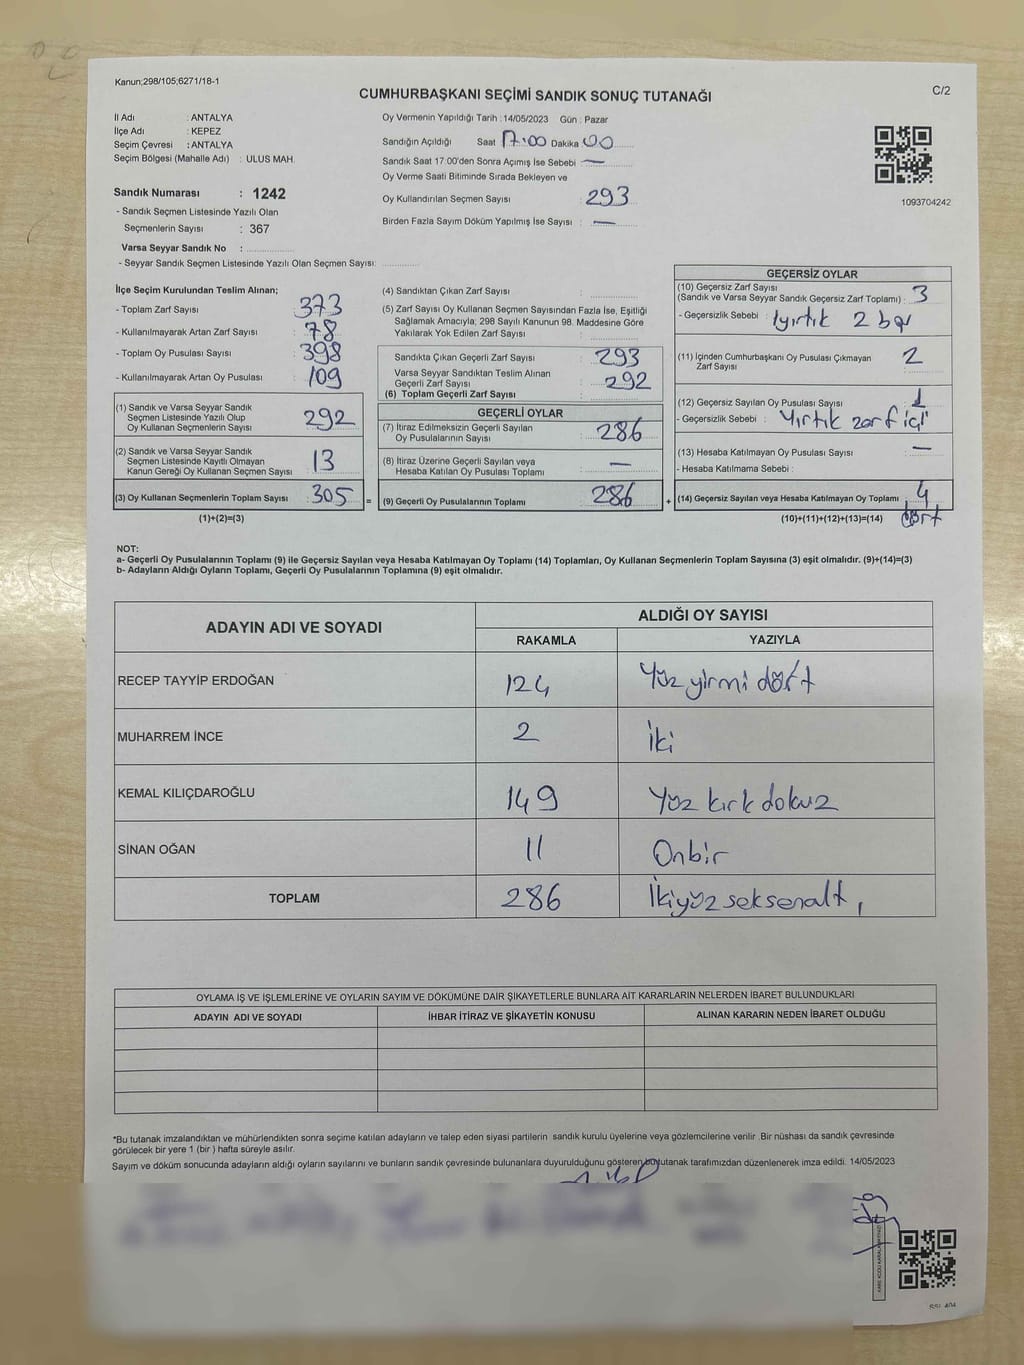 Kanun;298/105,6271/18-1
C/2
CUMHURBAŞKANI SEÇİMİ SANDIK SONUÇ TUTANAĞI
İl Adı : ANTALYA
İlçe Adı : KEPEZ
Seçim Çevresi : ANTALYA
Seçim Bölgesi (Mahalle Adı) : ULUS MAH.
Sandık Numarası : 1242
- Sandık Seçmen Listesinde Yazılı Olan
Seçmenlerin Sayısı : 367
Varsa Seyyar Sandık No :
- Seyyar Sandık Seçmen Listesinde Yazılı Olan Seçmen Sayısı:
Oy Vermenin Yapıldığı Tarih : 14/05/2023 Gün : Pazar
Sandığın Açıldığı Saat 17:00 Dakika 00
Sandık Saat 17:00'den Sonra Açımış İse Sebebi : —
Oy Verme Saati Bitiminde Sırada Bekleyen ve
Oy Kullandırılan Seçmen Sayısı : 293
Birden Fazla Sayım Döküm Yapılmış İse Sayısı : —
1093704242
İlçe Seçim Kurulundan Teslim Alınan;
- Toplam Zarf Sayısı : 373
- Kullanılmayarak Artan Zarf Sayısı : 78
- Toplam Oy Pusulası Sayısı : 398
- Kullanılmayarak Artan Oy Pusulası : 109
(1) Sandık ve Varsa Seyyar Sandık
Seçmen Listesinde Yazılı Olup
Oy Kullanan Seçmenlerin Sayısı : 292
(2) Sandık ve Varsa Seyyar Sandık
Seçmen Listesinde Kayıtlı Olmayan
Kanun Gereği Oy Kullanan Seçmen Sayısı : 13
(3) Oy Kullanan Seçmenlerin Toplam Sayısı : 305 =
(1)+(2)=(3)
(4) Sandıktan Çıkan Zarf Sayısı :
(5) Zarf Sayısı Oy Kullanan Seçmen Sayısından Fazla İse, Eşitliği
Sağlamak Amacıyla; 298 Sayılı Kanunun 98. Maddesine Göre
Yakılarak Yok Edilen Zarf Sayısı :
Sandıkta Çıkan Geçerli Zarf Sayısı : 293
Varsa Seyyar Sandıktan Teslim Alınan
Geçerli Zarf Sayısı : 292
(6) Toplam Geçerli Zarf Sayısı :
GEÇERLİ OYLAR
(7) İtiraz Edilmeksizin Geçerli Sayılan
Oy Pusulalarının Sayısı : 286
(8) İtiraz Üzerine Geçerli Sayılan veya
Hesaba Katılan Oy Pusulası Toplamı : —
(9) Geçerli Oy Pusulalarının Toplamı : 286 +
GEÇERSİZ OYLAR
(10) Geçersiz Zarf Sayısı
(Sandık ve Varsa Seyyar Sandık Geçersiz Zarf Toplamı) : 3
- Geçersizlik Sebebi : 1 yırtık 2 boş
(11) İçinden Cumhurbaşkanı Oy Pusulası Çıkmayan
Zarf Sayısı : 2
(12) Geçersiz Sayılan Oy Pusulası Sayısı : 1
- Geçersizlik Sebebi : Yırtık zarf içi
(13) Hesaba Katılmayan Oy Pusulası Sayısı : —
- Hesaba Katılmama Sebebi :
(14) Geçersiz Sayılan veya Hesaba Katılmayan Oy Toplamı : 4
(10)+(11)+(12)+(13)=(14) dört
NOT:
a- Geçerli Oy Pusulalarının Toplamı (9) ile Geçersiz Sayılan veya Hesaba Katılmayan Oy Toplamı (14) Toplamları, Oy Kullanan Seçmenlerin Toplam Sayısına (3) eşit olmalıdır. (9)+(14)=(3)
b- Adayların Aldığı Oyların Toplamı, Geçerli Oy Pusulalarının Toplamına (9) eşit olmalıdır.
ADAYIN ADI VE SOYADI
ALDIĞI OY SAYISI
RAKAMLA YAZIYLA
RECEP TAYYİP ERDOĞAN 124 Yüz yirmi dört
MUHARREM İNCE 2 İki
KEMAL KILIÇDAROĞLU 149 Yüz kırk dokuz
SİNAN OĞAN 11 Onbir
TOPLAM 286 İkiyüz seksenaltı
OYLAMA İŞ VE İŞLEMLERİNE VE OYLARIN SAYIM VE DÖKÜMÜNE DAİR ŞİKAYETLERLE BUNLARA AİT KARARLARIN NELERDEN İBARET BULUNDUKLARI
ADAYIN ADI VE SOYADI İHBAR İTİRAZ VE ŞİKAYETİN KONUSU ALINAN KARARIN NEDEN İBARET OLDUĞU
*Bu tutanak imzalandıktan ve mühürlendikten sonra seçime katılan adayların ve talep eden siyasi partilerin sandık kurulu üyelerine veya gözlemcilerine verilir .Bir nüshası da sandık çevresinde
görülecek bir yere 1 (bir ) hafta süreyle asılır.
Sayım ve döküm sonucunda adayların aldığı oyların sayılarını ve bunların sandık çevresinde bulunanlara duyurulduğunu gösteren bu tutanak tarafımızdan düzenlenerek imza edildi. 14/05/2023